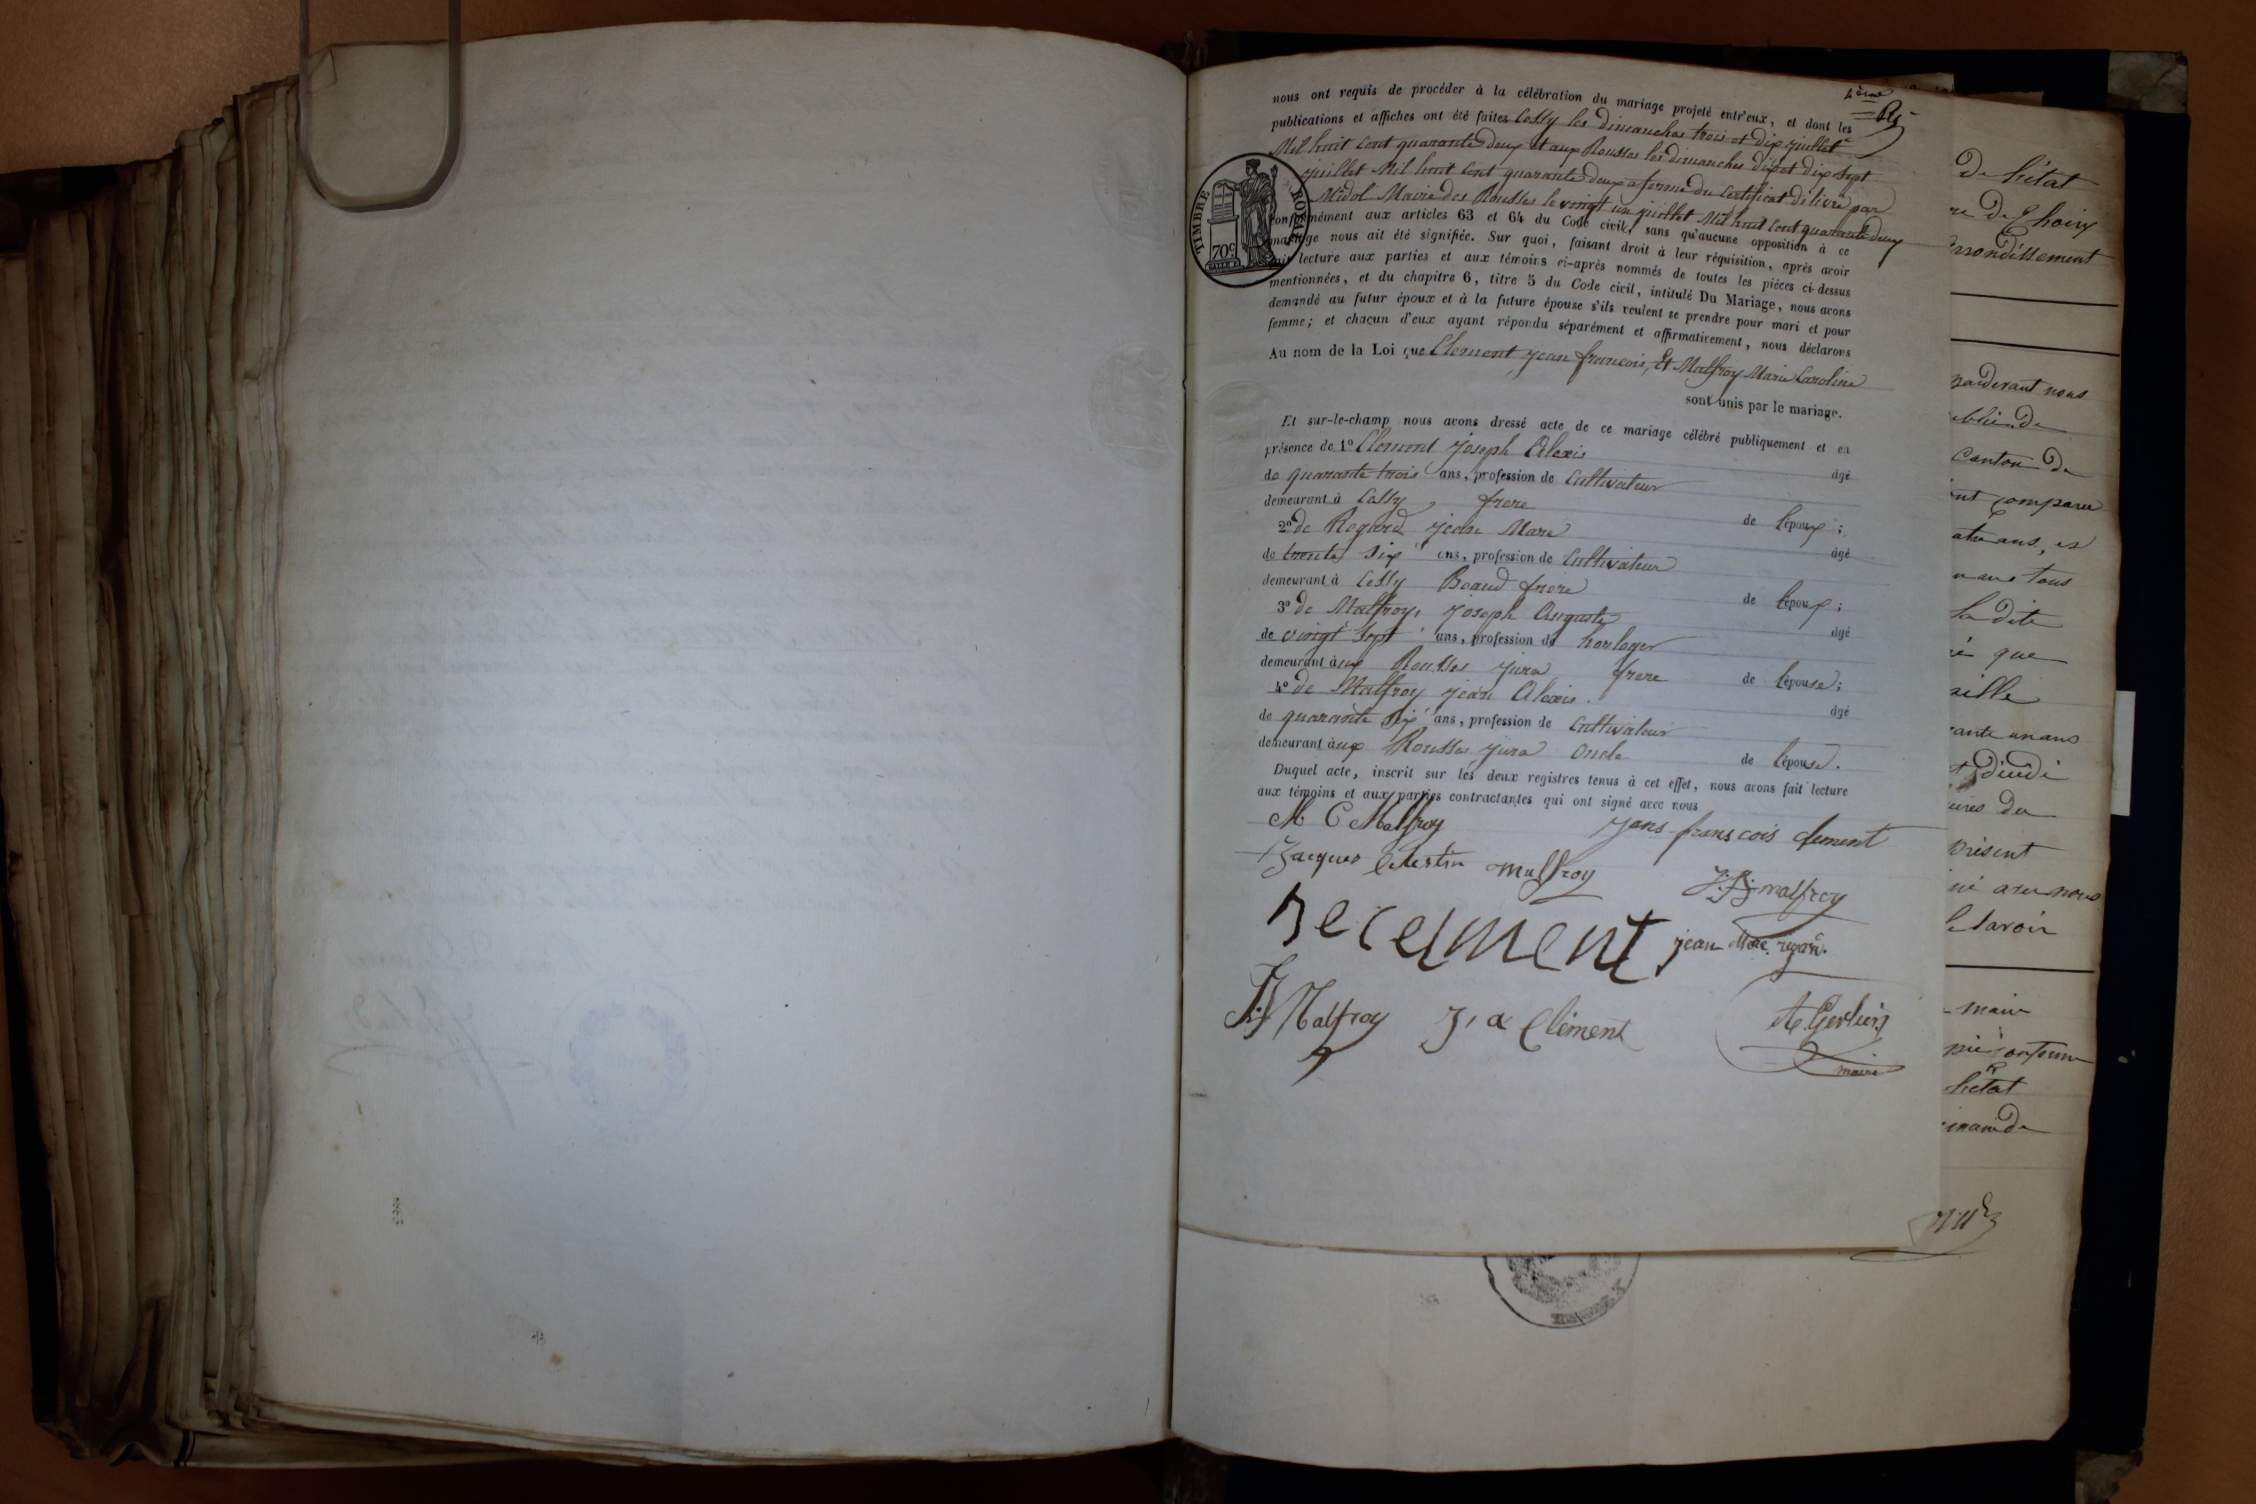 4ème
nous ont requis de procéder à la célébration du mariage projeté entr'eux, et dont les
publications et affiches ont été faites Cessy les dimanches trois et dix juillet
Mil huit Cent quarante deux et aux Rousses les dimanches dix et dix sept
juillet Mil huit Cent quarante deux a forme du Certificat délivré par
Midol Maire des Rousses le vingt un juillet Mil huit Cent quarante deux
conformément aux articles 63 et 64 du Code civil, sans qu'aucune opposition à ce
mariage nous ait été signifiée. Sur quoi, faisant droit à leur réquisition, après avoir
fait lecture aux parties et aux témoins ci-après nommés de toutes les pièces ci-dessus
mentionnées, et du chapitre 6, titre 5 du Code civil, intitulé Du Mariage, nous avons
demandé au futur époux et à la future épouse s'ils veulent se prendre pour mari et pour
femme; et chacun d'eux ayant répondu séparément et affirmativement, nous déclarons
Au nom de la Loi que Clement jean francois, Et Malfroy Marie Caroline
sont unis par le mariage.
Et sur-le-champ nous avons dressé acte de ce mariage célébré publiquement et en
présence de 1º Clement Joseph Alexis
âgé
de quarante trois ans, profession de Cultivateur
demeurant à Cessy frere de l'époux;
2º de Regard jean Marc
âgé
de trente six ans, profession de Cultivateur
demeurant à Cessy Beaud frere de l'époux;
3º de Malfroy, joseph Auguste
âgé
de vingt sept ans, profession de horloger
demeurant aux Rousses jura frere de l'épouse;
4º de Malfroy jean Alexis.
âgé
de quarante six ans, profession de Cultivateur
demeurant aux Rousses jura oncle de l'épouse.
Duquel acte, inscrit sur les deux registres tenus à cet effet, nous avons fait lecture
aux témoins et aux parties contractantes qui ont signé avec nous
M C Malfroy jans francois clement
Jacques Celestin malfroy J. A. malfroy
jean Marc regard.
Malfroy J, a Clément A. Gerlier
maire
TIMBRE ROYAL
70c
De l'état
de Thoiry
arrondissement
pardevant nous
Canton de
comparu
ans, es
tous
la dite
que
ante un ans
présent
a ser nous
le savoir
l'état